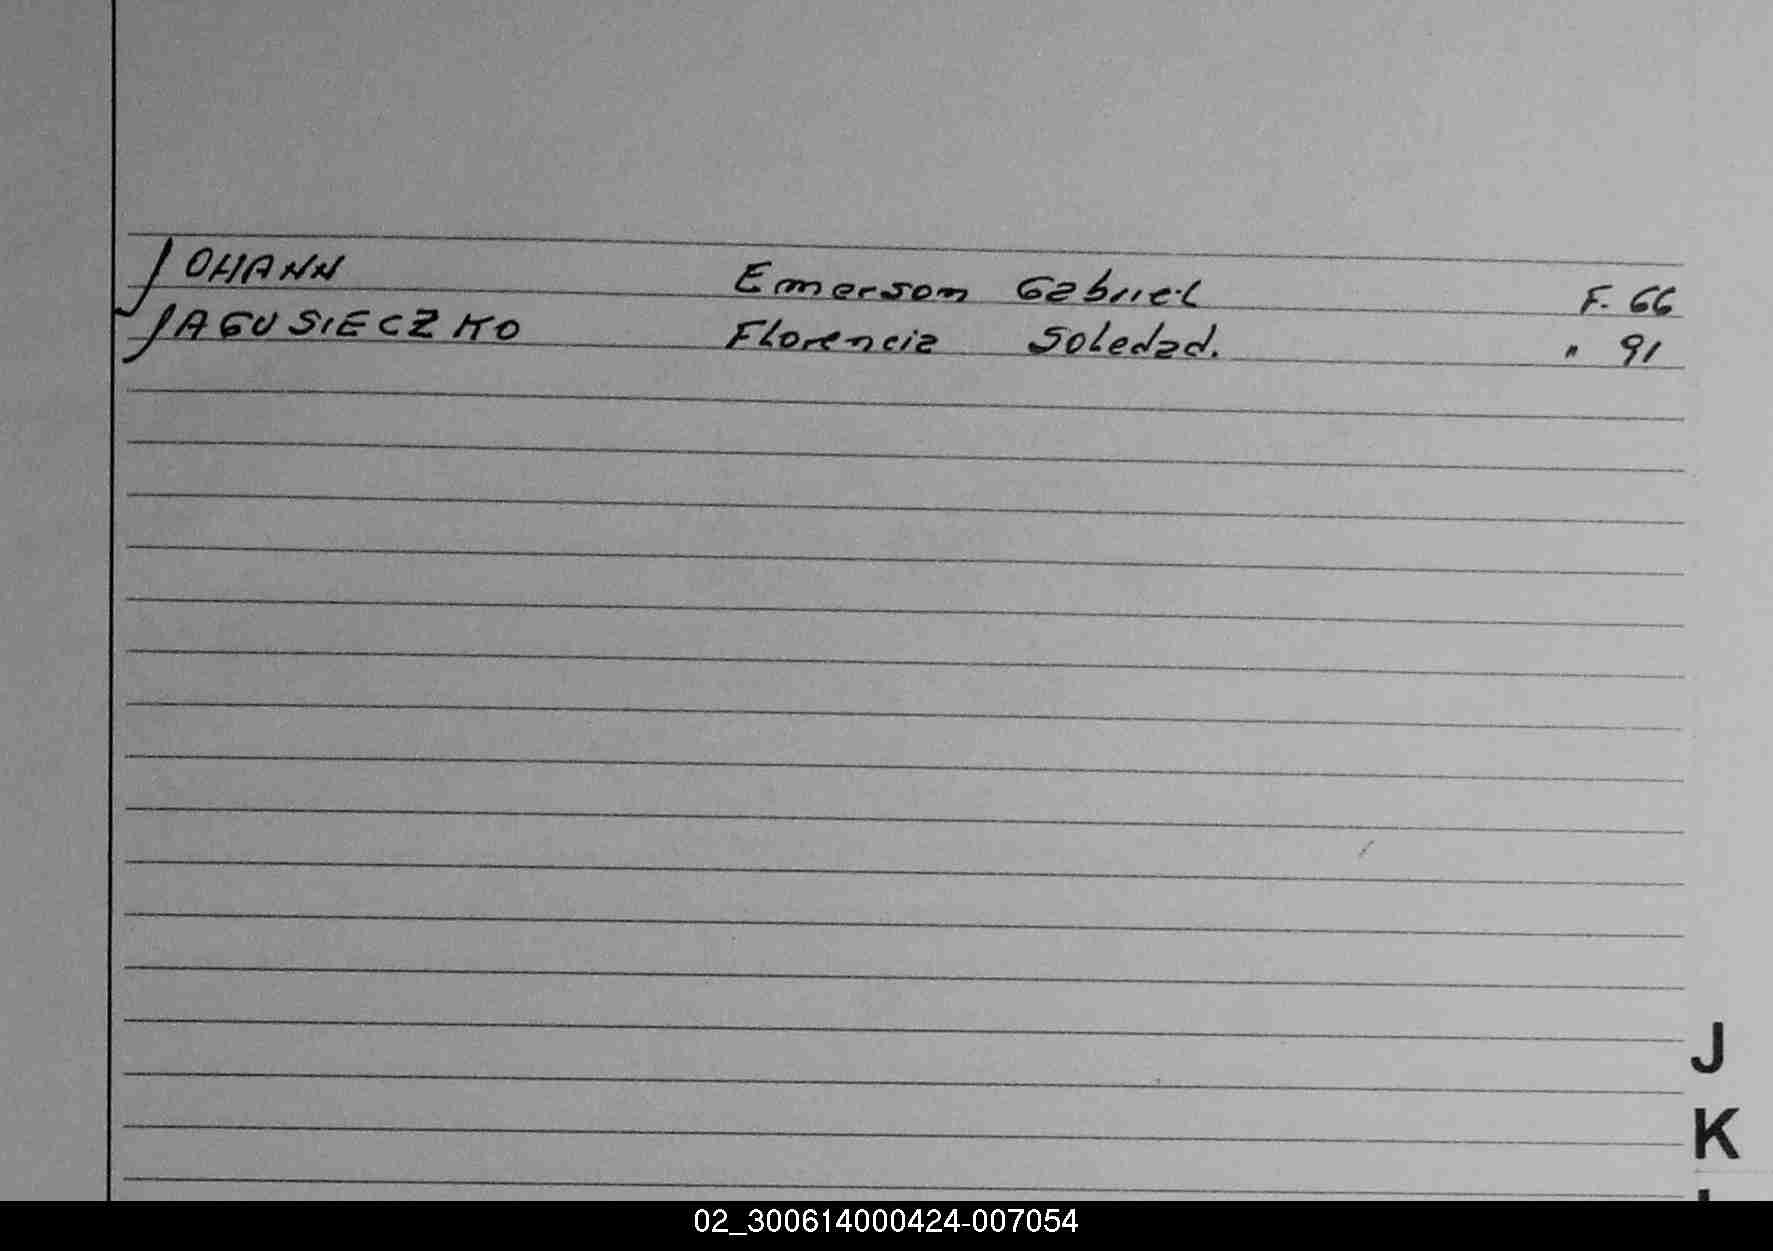 JOHANN Emerson Gabriel F. 66
JAGUSIECZKO Florencia Soledad. " 91
J
K
02_300614000424-007054